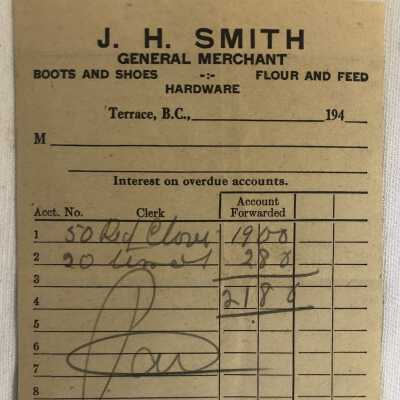 J. H. SMITH
GENERAL MERCHANT
BOOTS AND SHOES -:- FLOUR AND FEED
HARDWARE
Terrace, B.C., 194
M
Interest on overdue accounts.
Acct. No. Clerk Account Forwarded
1 50 Red Clover 1900
2 20 280
3
4 2180
5
6
7
8